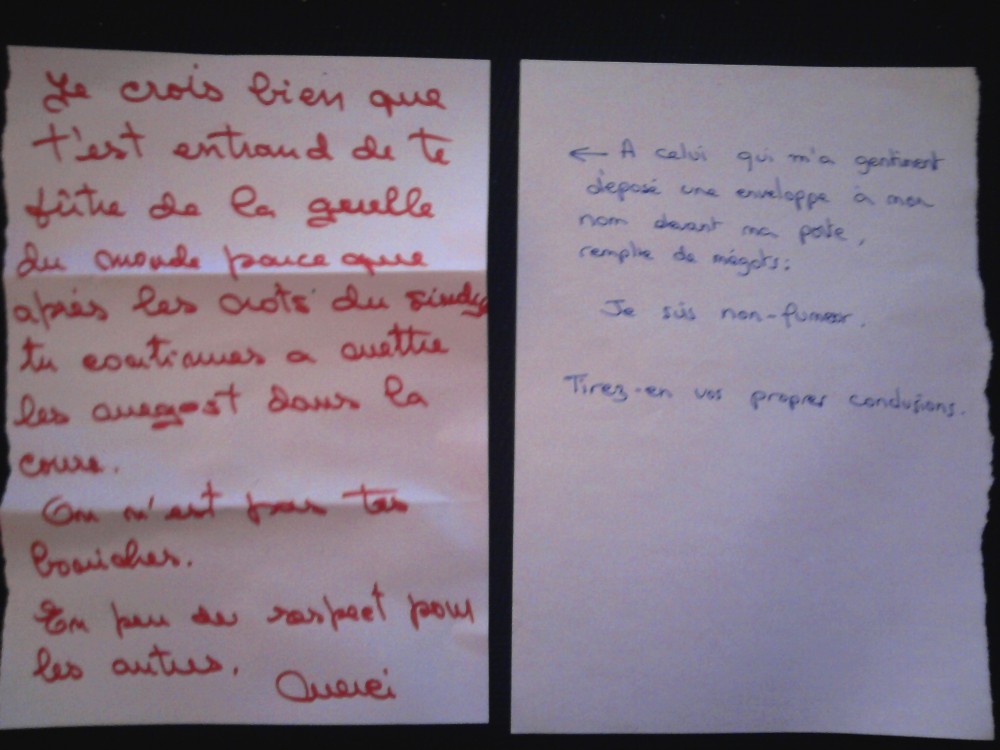 Je crois bien que
t'est entraud de te
fûtre de la geulle
du monde pauce que
aprés les mots du sindyc
tu continues a mettre
les megost dans la
cours.
On n'est pas tes
boniches.
En peu de respect pour
les autres.
Merci
← A celui qui m'a gentiment
déposé une enveloppe à mon
nom devant ma porte,
remplie de mégots:
Je suis non-fumeur.
Tirez-en vos propres conclusions.